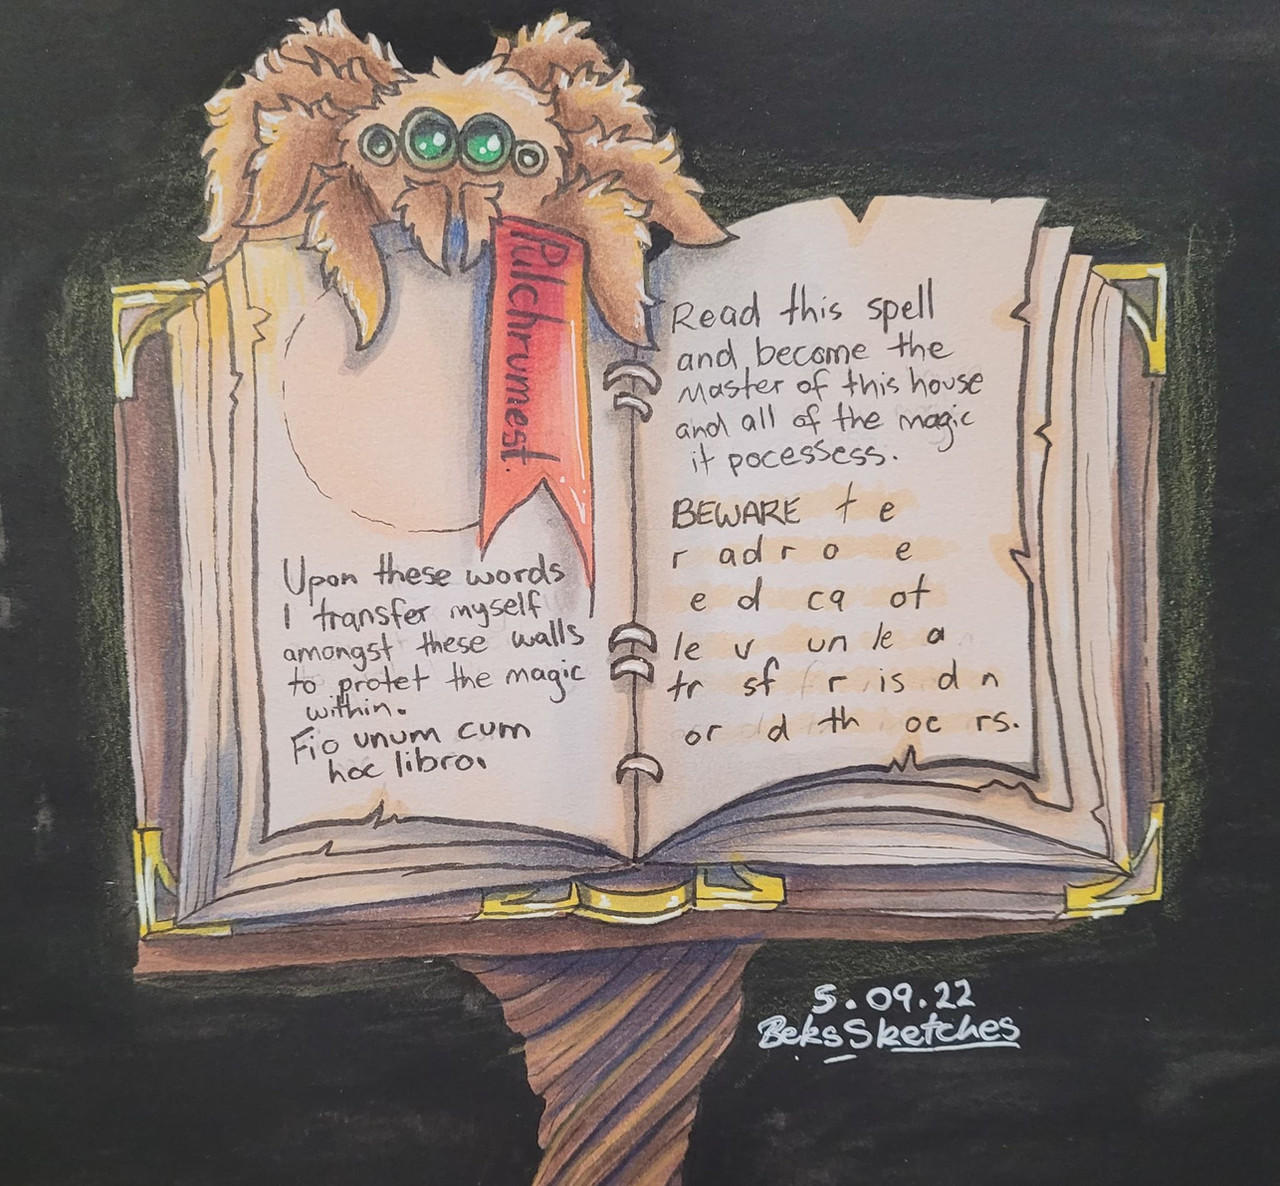 Pulchrumest.
Upon these words
I transfer myself
amongst these walls
to protet the magic
within.
Fio unum cum
hoc libro.
Read this spell
and become the
master of this house
and all of the magic
it pocessess.
BEWARE t e
r adr o e
e d ca ot
le v un le a
tr sf r is d n
or d th oc rs.
5.09.22
BeksSketches